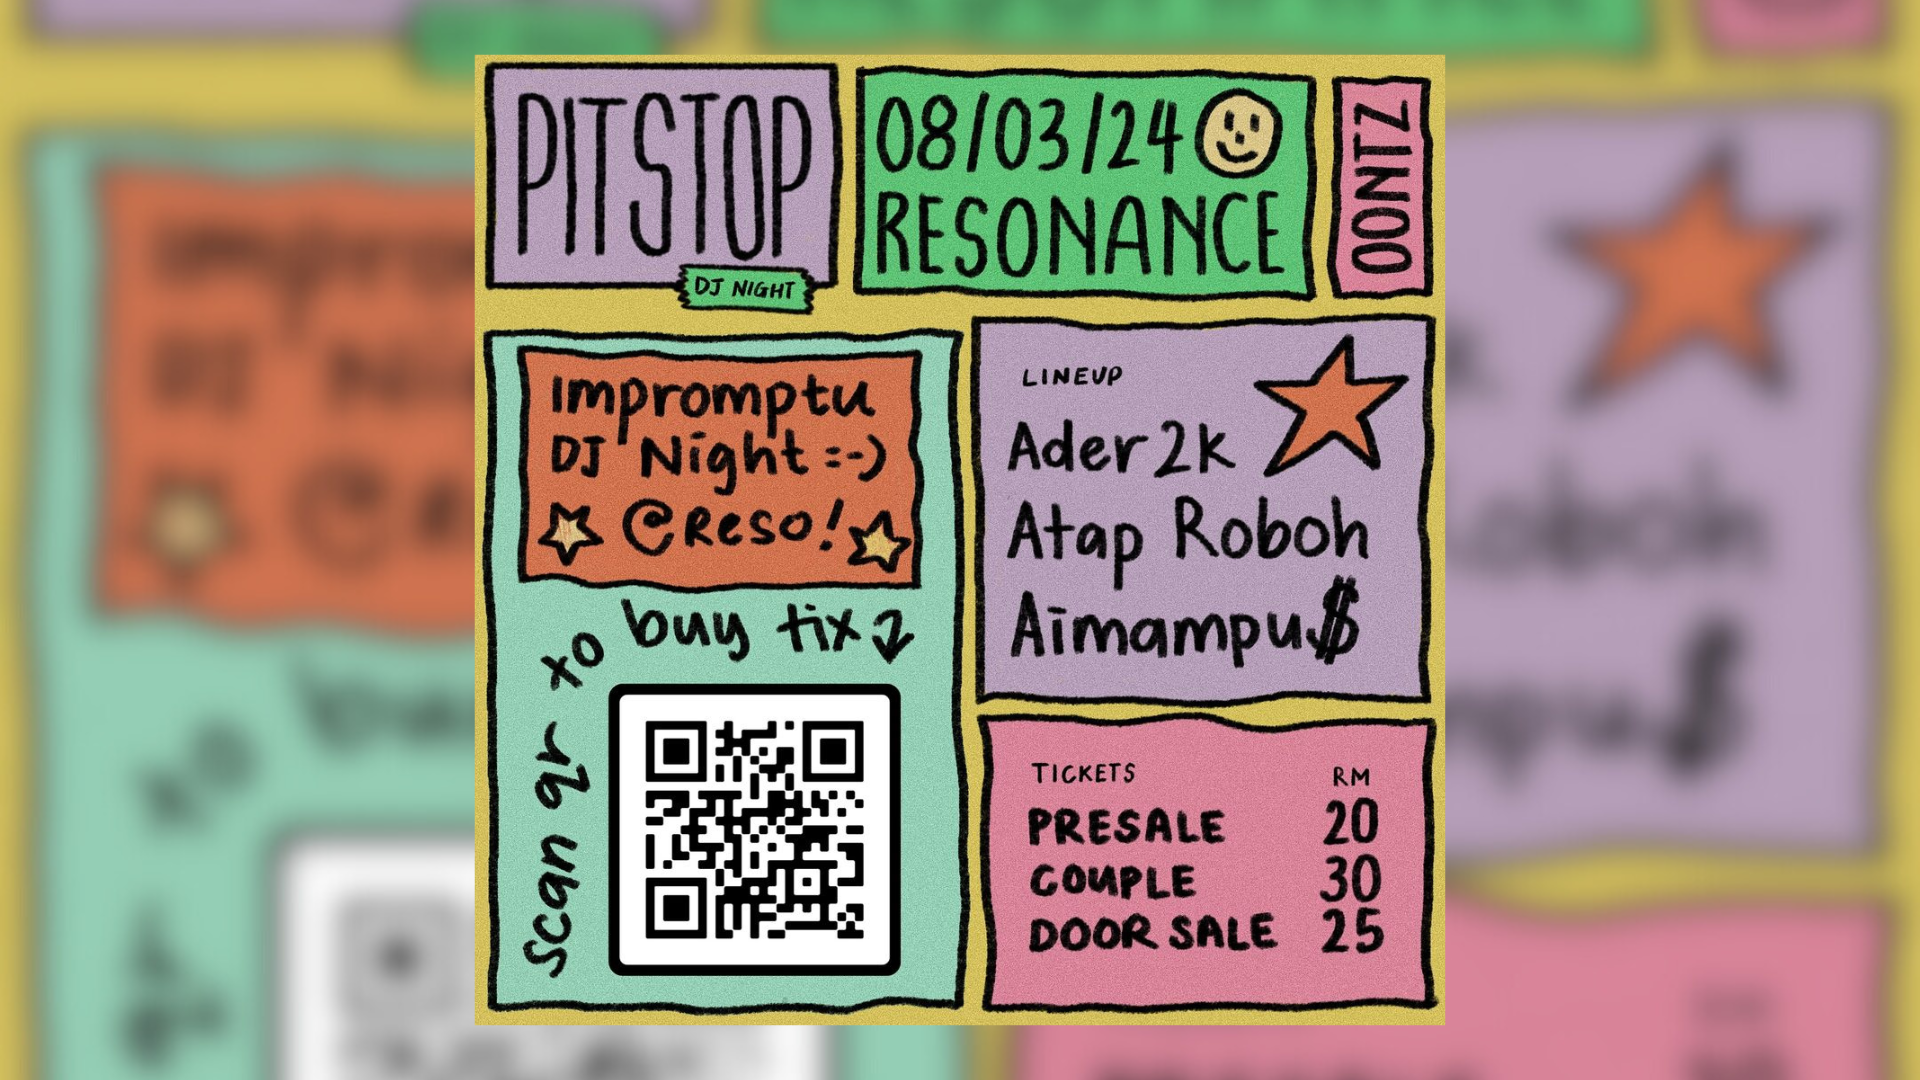 PITSTOP
DJ NIGHT
08/03/24
RESONANCE
OONTZ
Impromptu
DJ Night =-)
@Reso!
scan qr to buy tix
LINEUP
Ader2k
Atap Roboh
Aimampu$
TICKETS RM
PRESALE 20
COUPLE 30
DOOR SALE 25